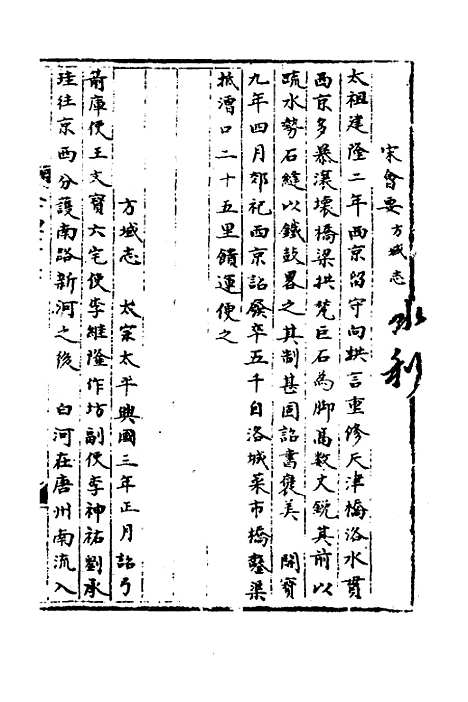 宋會要 方域志
水利
太祖建隆二年西京留守向拱言重修天津橋洛水貫
西京多暴瀑壞橋梁拱甃巨石為脚高数丈銳其前以
疏水勢石縫以鐵鼓畧之其制甚固詔書褒美 開寶
九年四月郊祀西京詔發卒五千自洛城菜市橋鑿渠
抵漕口二十五里饋運便之
方域志 太宗太平興國三年正月詔弓
箭庫使王文寳六宅使李繼隆作坊副使李神祐劉承
珪往京西分護南路新河之後 白河在唐州南流入